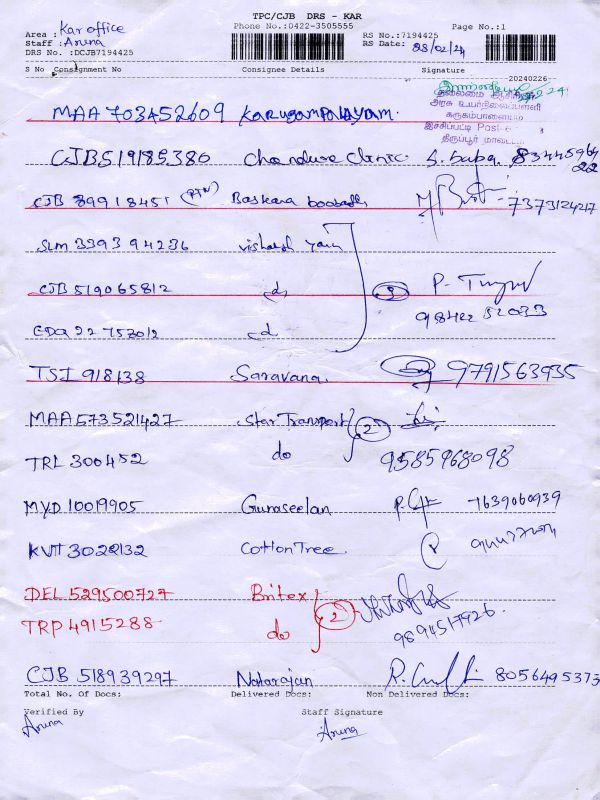 TPC/CJB DRS - KAR
Phone No.:0422-3505555 Page No.:1
Area : Kar office
Staff : Aruna
DRS No. :DCJB7194425
RS No.:7194425
RS Date: 28/02/24
S No Consignment No Consignee Details Signature
20240226
தலைமை ஆசிரியர்
அரசு உயர்நிலைப்பள்ளி
கருகம்பாளையம்
இச்சிப்பட்டி Post
திருப்பூர்
MAA 703452609 Karugampalayam.
CJB 519185380 Clinic. S. Baba.
CJB 89918451 Baskara 7373124217
SLM 339394236
CJB 519065812 do 3
CDQ 22753012 do 98422 52033
TSI 918138 Saravana. 9791563935
MAA 573521427 Star Transport 2
TRL 300452 do 9585968098
MYD 10019905 Gunaseelan 7639060939
KVT 3022132 Cotton Tree.
DEL 529500727 Britex 2
TRP 4915288 do 9894517926.
CJB 518939297 Natarajan 8056495373
Total No. Of Docs: Delivered Docs: Non Delivered Docs:
Verified By Staff Signature
Aruna Aruna